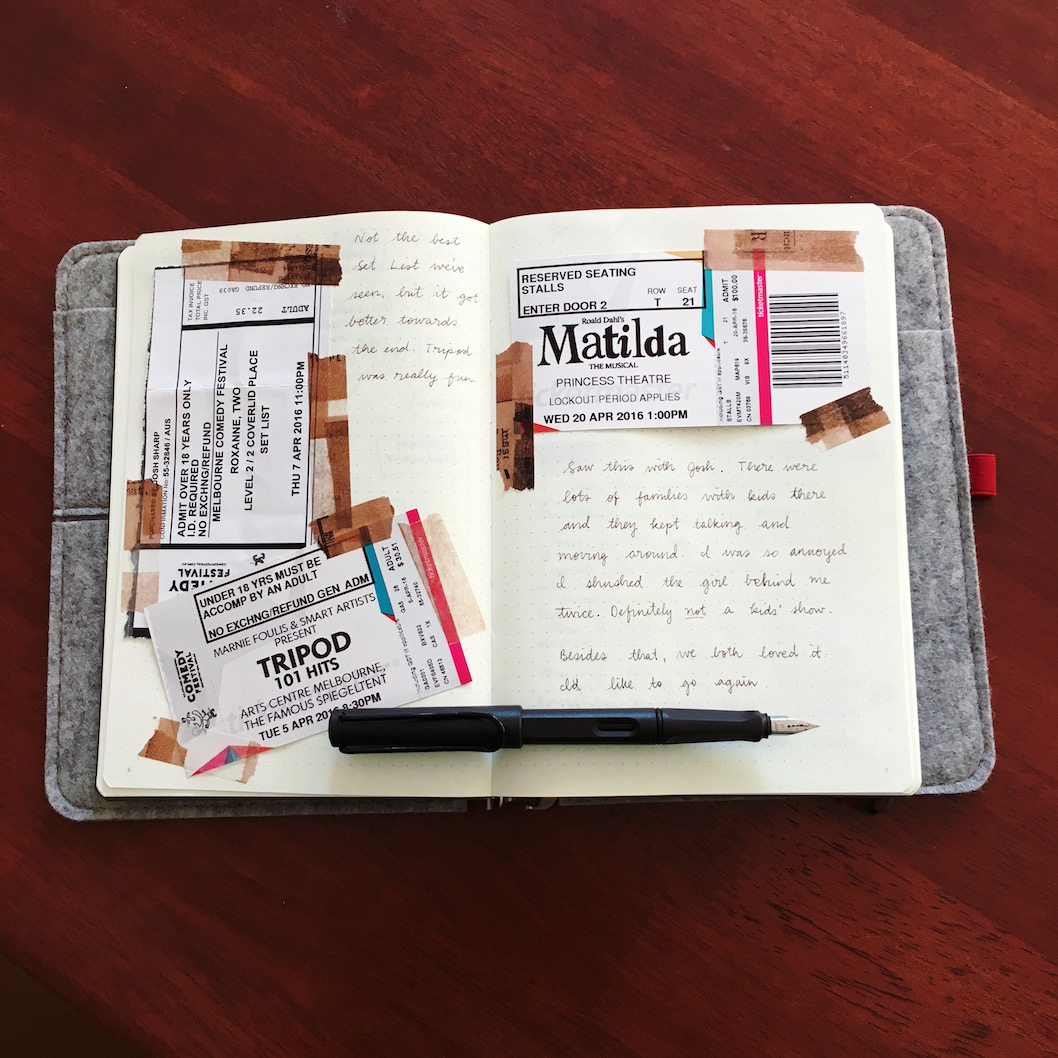 Not the best
Set List we've
seen, but it got
better towards
the end. Tripod
was really fun.
TAX INVOICE
TOTAL PRICE
INC. GST
NO EXCHNG/REFUND GA039
22.35 ADULT
JOSH SHARP
CONFIRMATION No: 55-32846 / AUS
ADMIT OVER 18 YEARS ONLY
I.D. REQUIRED
NO EXCHNG/REFUND
MELBOURNE COMEDY FESTIVAL
ROXANNE, TWO
LEVEL 2 / 2 COVERLID PLACE
SET LIST
THU 7 APR 2016 11:00PM
FESTIVAL
UNDER 18 YRS MUST BE
ACCOMP BY AN ADULT
NO EXCHNG/REFUND GEN ADM
MARNIE FOULIS & SMART ARTISTS
PRESENT
TRIPOD
101 HITS
ARTS CENTRE MELBOURNE,
THE FAMOUS SPIEGELTENT
TUE 5 APR 2016 8:30PM
COMEDY
FESTIVAL
ADULT
$30.51
ticketmaster
6
RESERVED SEATING
STALLS
ROW SEAT
ENTER DOOR 2 T 21
Roald Dahl's
Matilda
THE MUSICAL
PRINCESS THEATRE
LOCKOUT PERIOD APPLIES
WED 20 APR 2016 1:00PM
ADMIT
$100.00
T 21
20-APR-16
STALLS
MAP619
EVMT420M
VIS 9X
CN 03788
ticketmaster
511403496618​97
Saw this with Josh. There were
lots of families with kids there
and they kept talking and
moving around. I was so annoyed
I shushed the girl behind me
twice. Definitely not a kids' show.
Besides that, we both loved it
I'd like to go again.
7